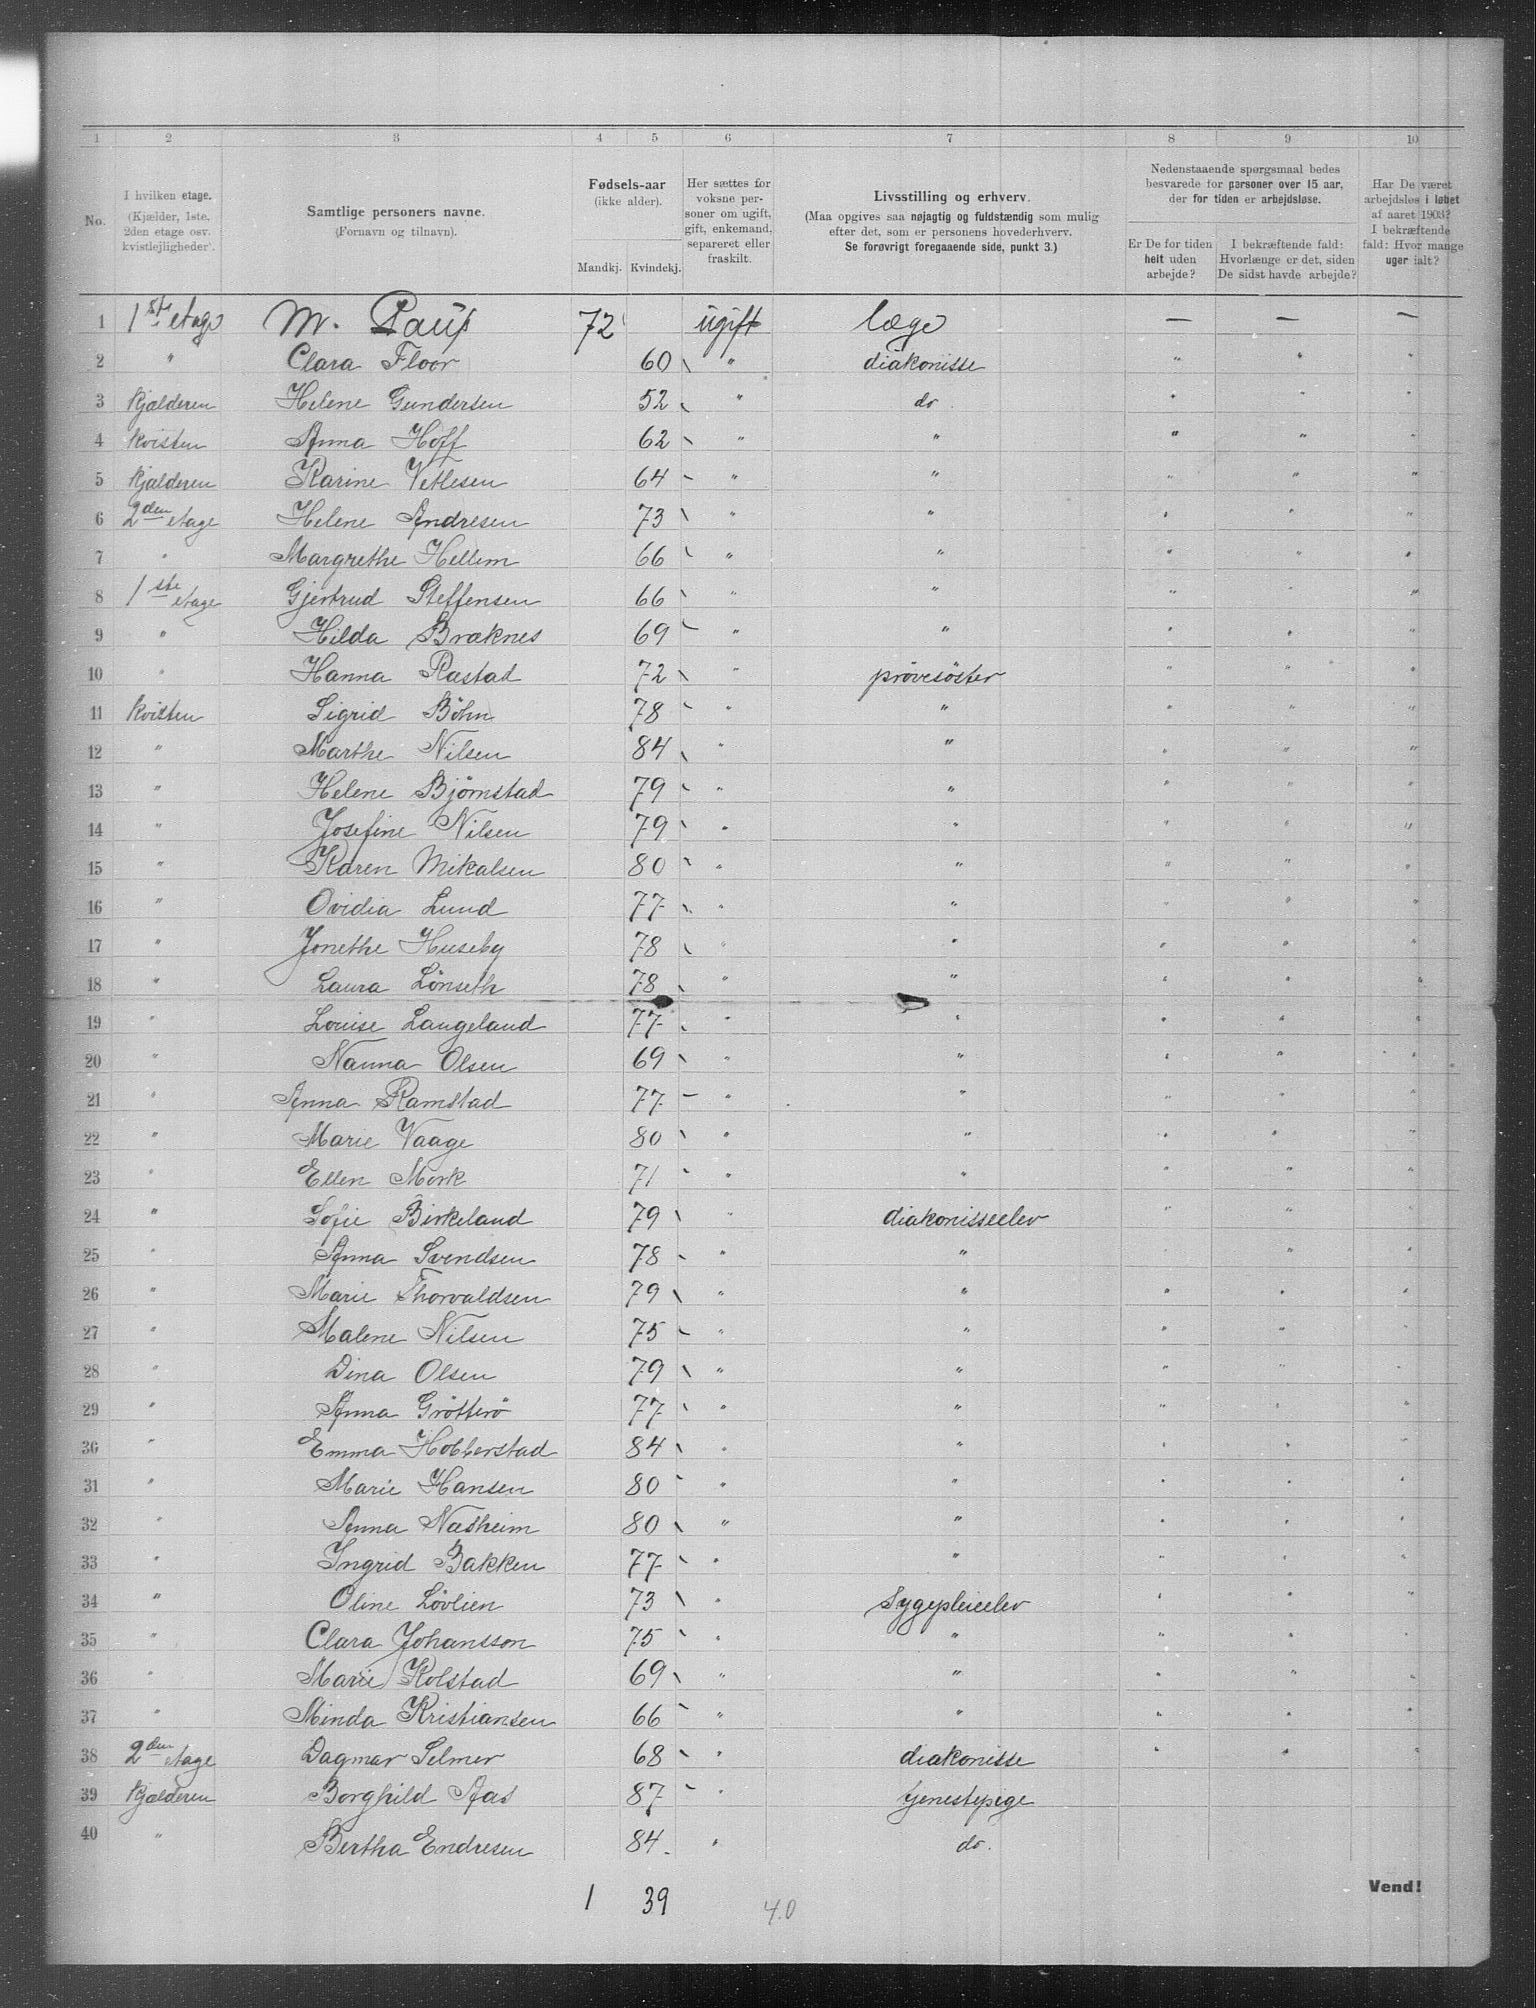 1 2 3 4 5 6 7 8 9 10
No.
I hvilken etage.
(Kjælder, 1ste,
2den etage osv.
kvistlejligheder).
Samtlige personers navne.
(Fornavn og tilnavn).
Fødsels-aar
(ikke alder).
Mandkj. Kvindekj.
Her sættes for
voksne per-
soner om ugift,
gift, enkemand,
separeret eller
fraskilt.
Livsstilling og erhverv.
(Maa opgives saa nøjagtig og fuldstændig som mulig
efter det, som er personens hovederhverv.
Se forøvrigt foregaaende side, punkt 3.)
Nedenstaaende spørgsmaal bedes
besvarede for personer over 15 aar,
der for tiden er arbejdsløse.
Er De for tiden
helt uden
arbejde?
I bekræftende fald:
Hvorlænge er det, siden
De sidst havde arbejde?
Har De været
arbejdsløs i løbet
af aaret 1903?
I bekræftende
fald: Hvor mange
uger ialt?
1 1ste etage M. Paus 72 ugift læge — — —
2 " Clara Floor 60 " diakonisse " " "
3 Kjælderen Helene Gundersen 52 " do. " " "
4 Kvisten Anna Hoff 62 " " " " "
5 Kjælderen Karine Vetlesen 64 " " " " "
6 2den etage Helene Andresen 73 " " " " "
7 " Margrethe Hellem 66 " " " " "
8 1ste etage Gjertrud Steffensen 66 " " " " "
9 " Hilda Bræknes 69 " " " " "
10 " Hanna Rastad 72 " prøvesöster " " "
11 Kvisten Sigrid Böhn 78 " " " " "
12 " Marthe Nilsen 84 " " " " "
13 " Helene Bjørnstad 79 " " " " "
14 " Josefine Nilsen 79 " " " " "
15 " Karen Mikalsen 80 " " " " "
16 " Ovidia Lund 77 " " " " "
17 " Jonethe Huseby 78 " " " " "
18 " Laura Lönseth 78 " " " " "
19 " Louise Langeland 77 " " " " "
20 " Nanna Olsen 69 " " " " "
21 " Anna Ramstad 77 " " " " "
22 " Marie Vaage 80 " " " " "
23 " Ellen Mork 71 " " " " "
24 " Sofie Birkeland 79 " diakonisseelev " " "
25 " Anna Svendsen 78 " " " " "
26 " Marie Thorvaldsen 79 " " " " "
27 " Malene Nilsen 75 " " " " "
28 " Dina Olsen 79 " " " " "
29 " Anna Grötterö 77 " " " " "
30 " Emma Hobberstad 84 " " " " "
31 " Marie Hansen 80 " " " " "
32 " Anna Næsheim 80 " " " " "
33 " Ingrid Bakken 77 " " " " "
34 " Oline Løvlien 73 " Sygepleieelev " " "
35 " Clara Johansson 75 " " " " "
36 " Marie Kolstad 69 " " " " "
37 " Minda Kristiansen 66 " " " " "
38 2den etage Dagmar Selmer 68 " diakonisse " " "
39 Kjælderen Borghild Aas 87 " tjenestepige
40 " Bertha Endresen 84 " do.
1 39 40
Vend!